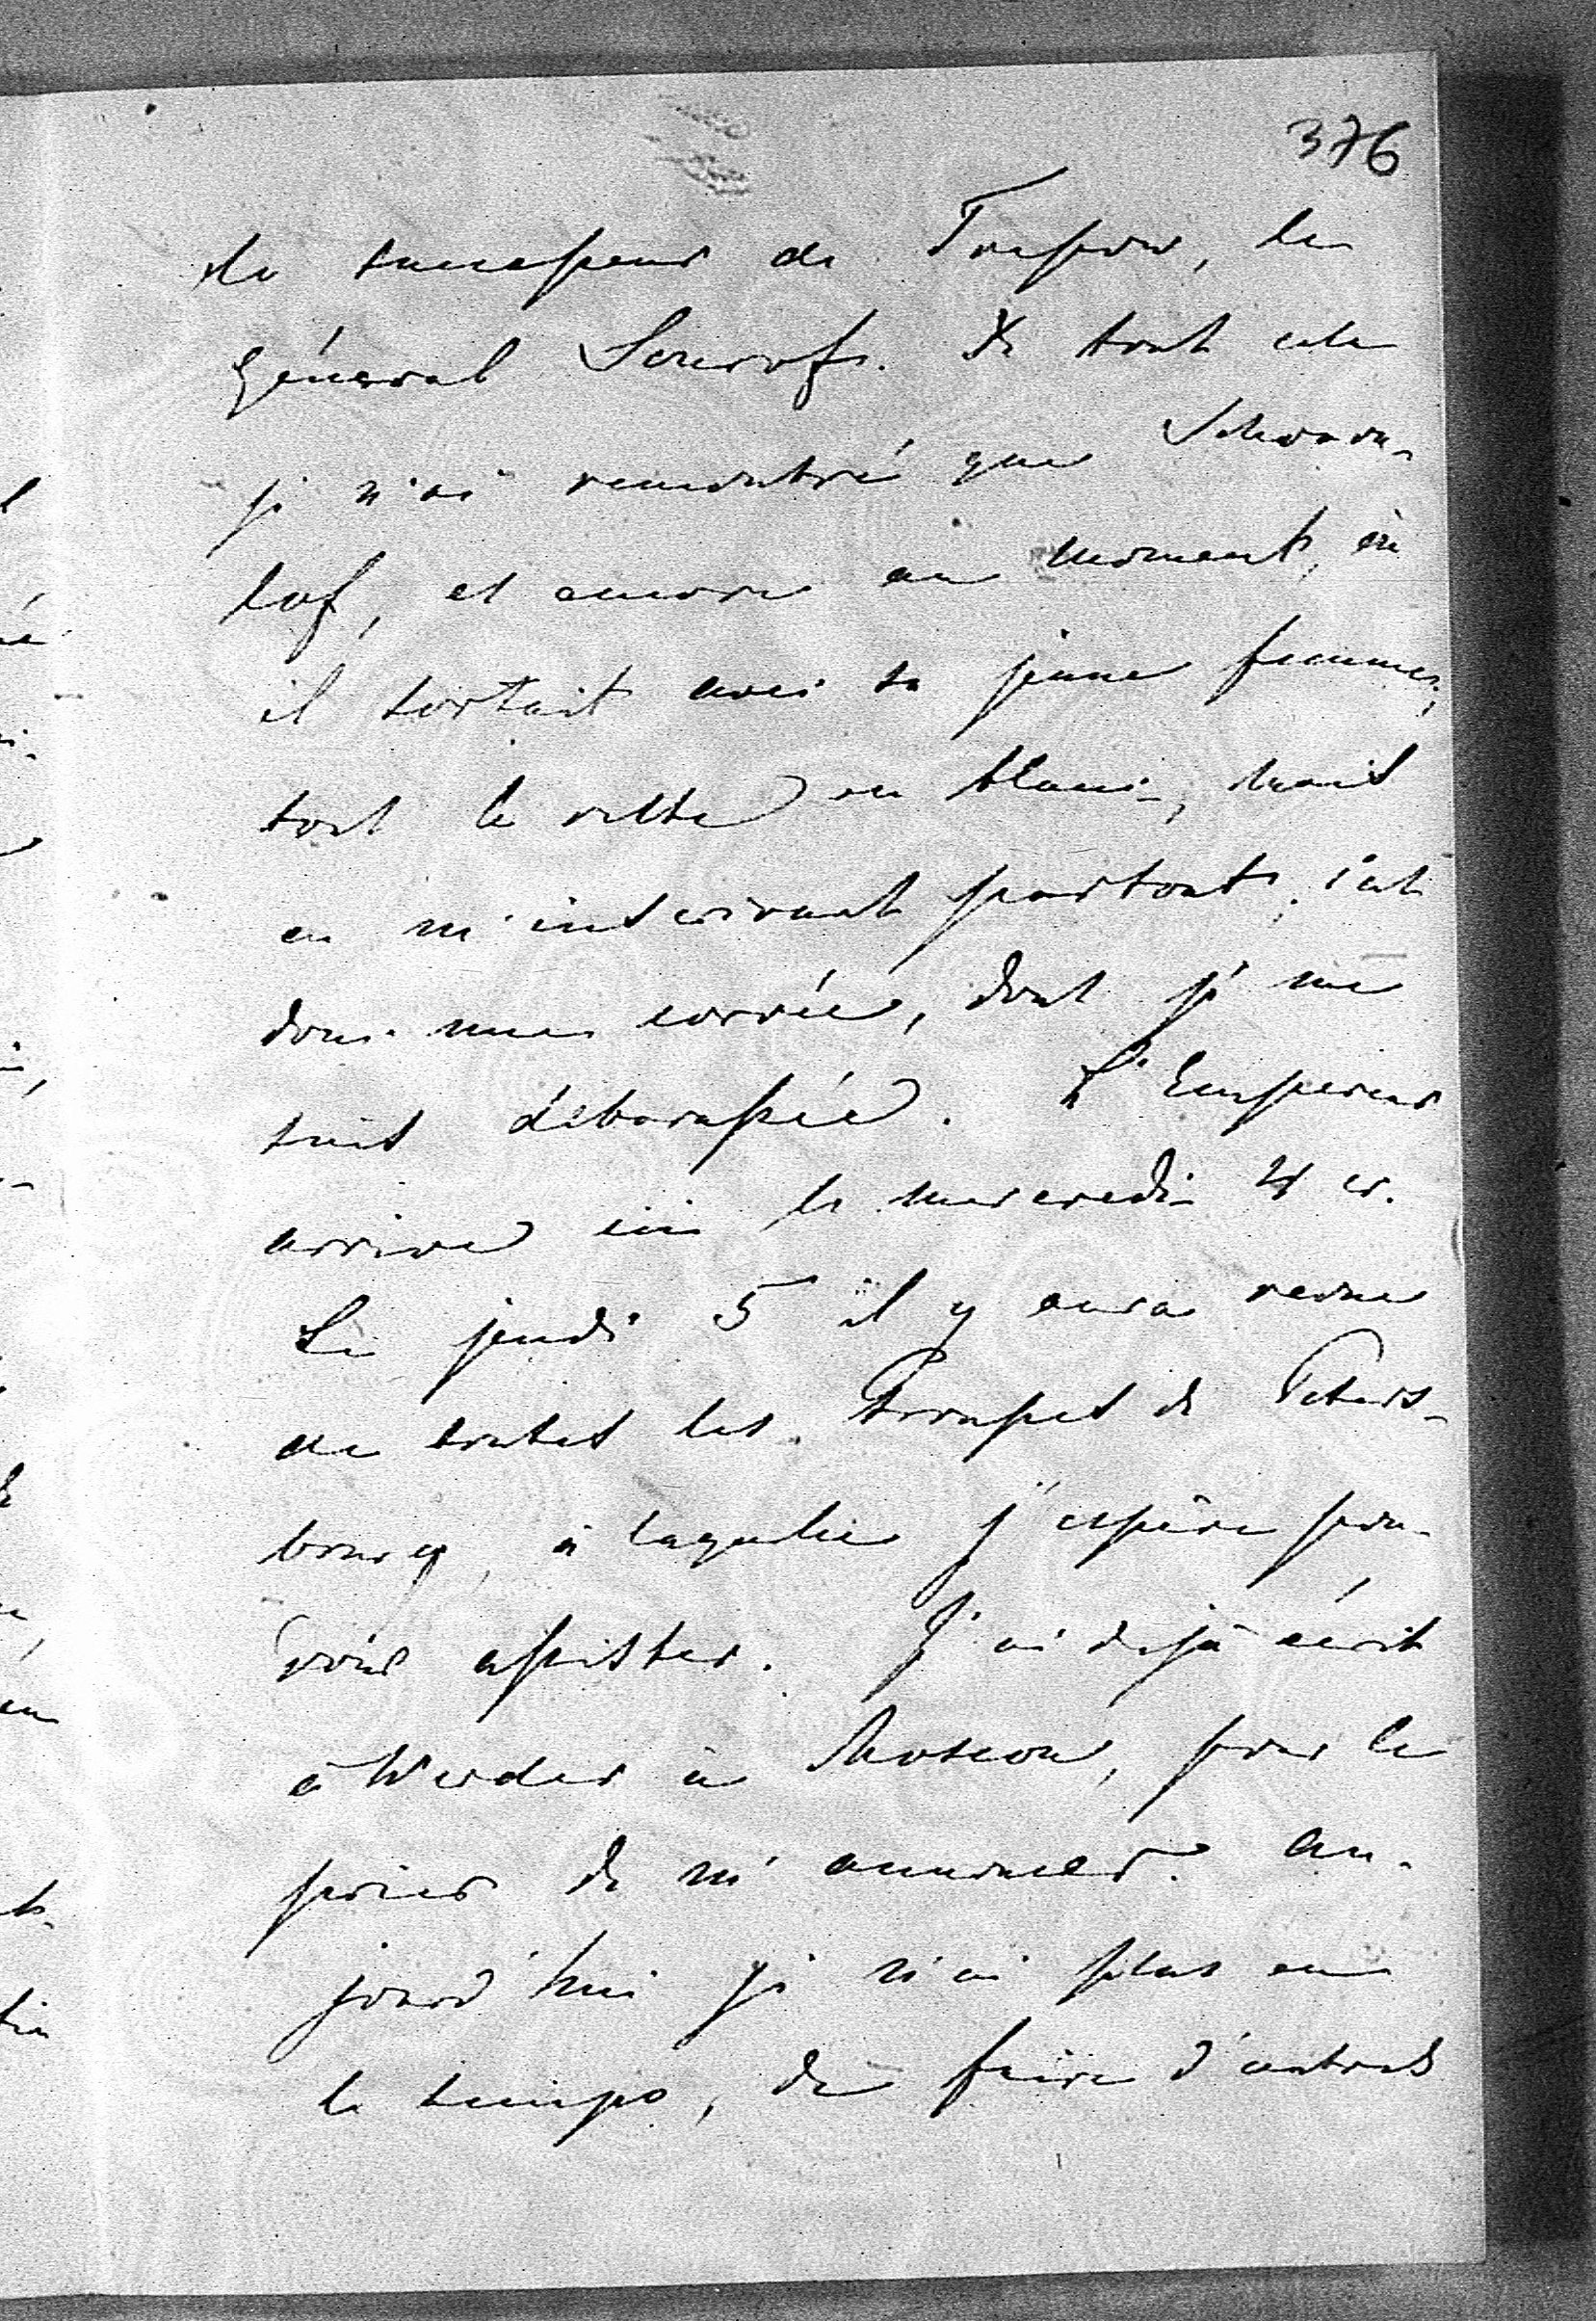 376
le successeur de Trepow, le
général Sourof. De tout cela
je n'ai rencontré que Schouva-
lof, et encore au moment, où
il sortait avec sa jeune femme;
tout le reste en blanc, mais
en m'inscrivant partout; c'est
donc une corvée, dont je me
suis débarassée. L'Empereur
arrive ici le mercredi 4 cr.
Le jeudi 5 il y aura revue
de toutes les troupes de Peters-
bourg, à laquelle j'espère pou-
voir assister. J'ai dejà écrit
à Werder à Moscou, pour le
prier de m'annoncer. Au-
jourd'hui je n'ai plus eu
le temps, de faire d'autres